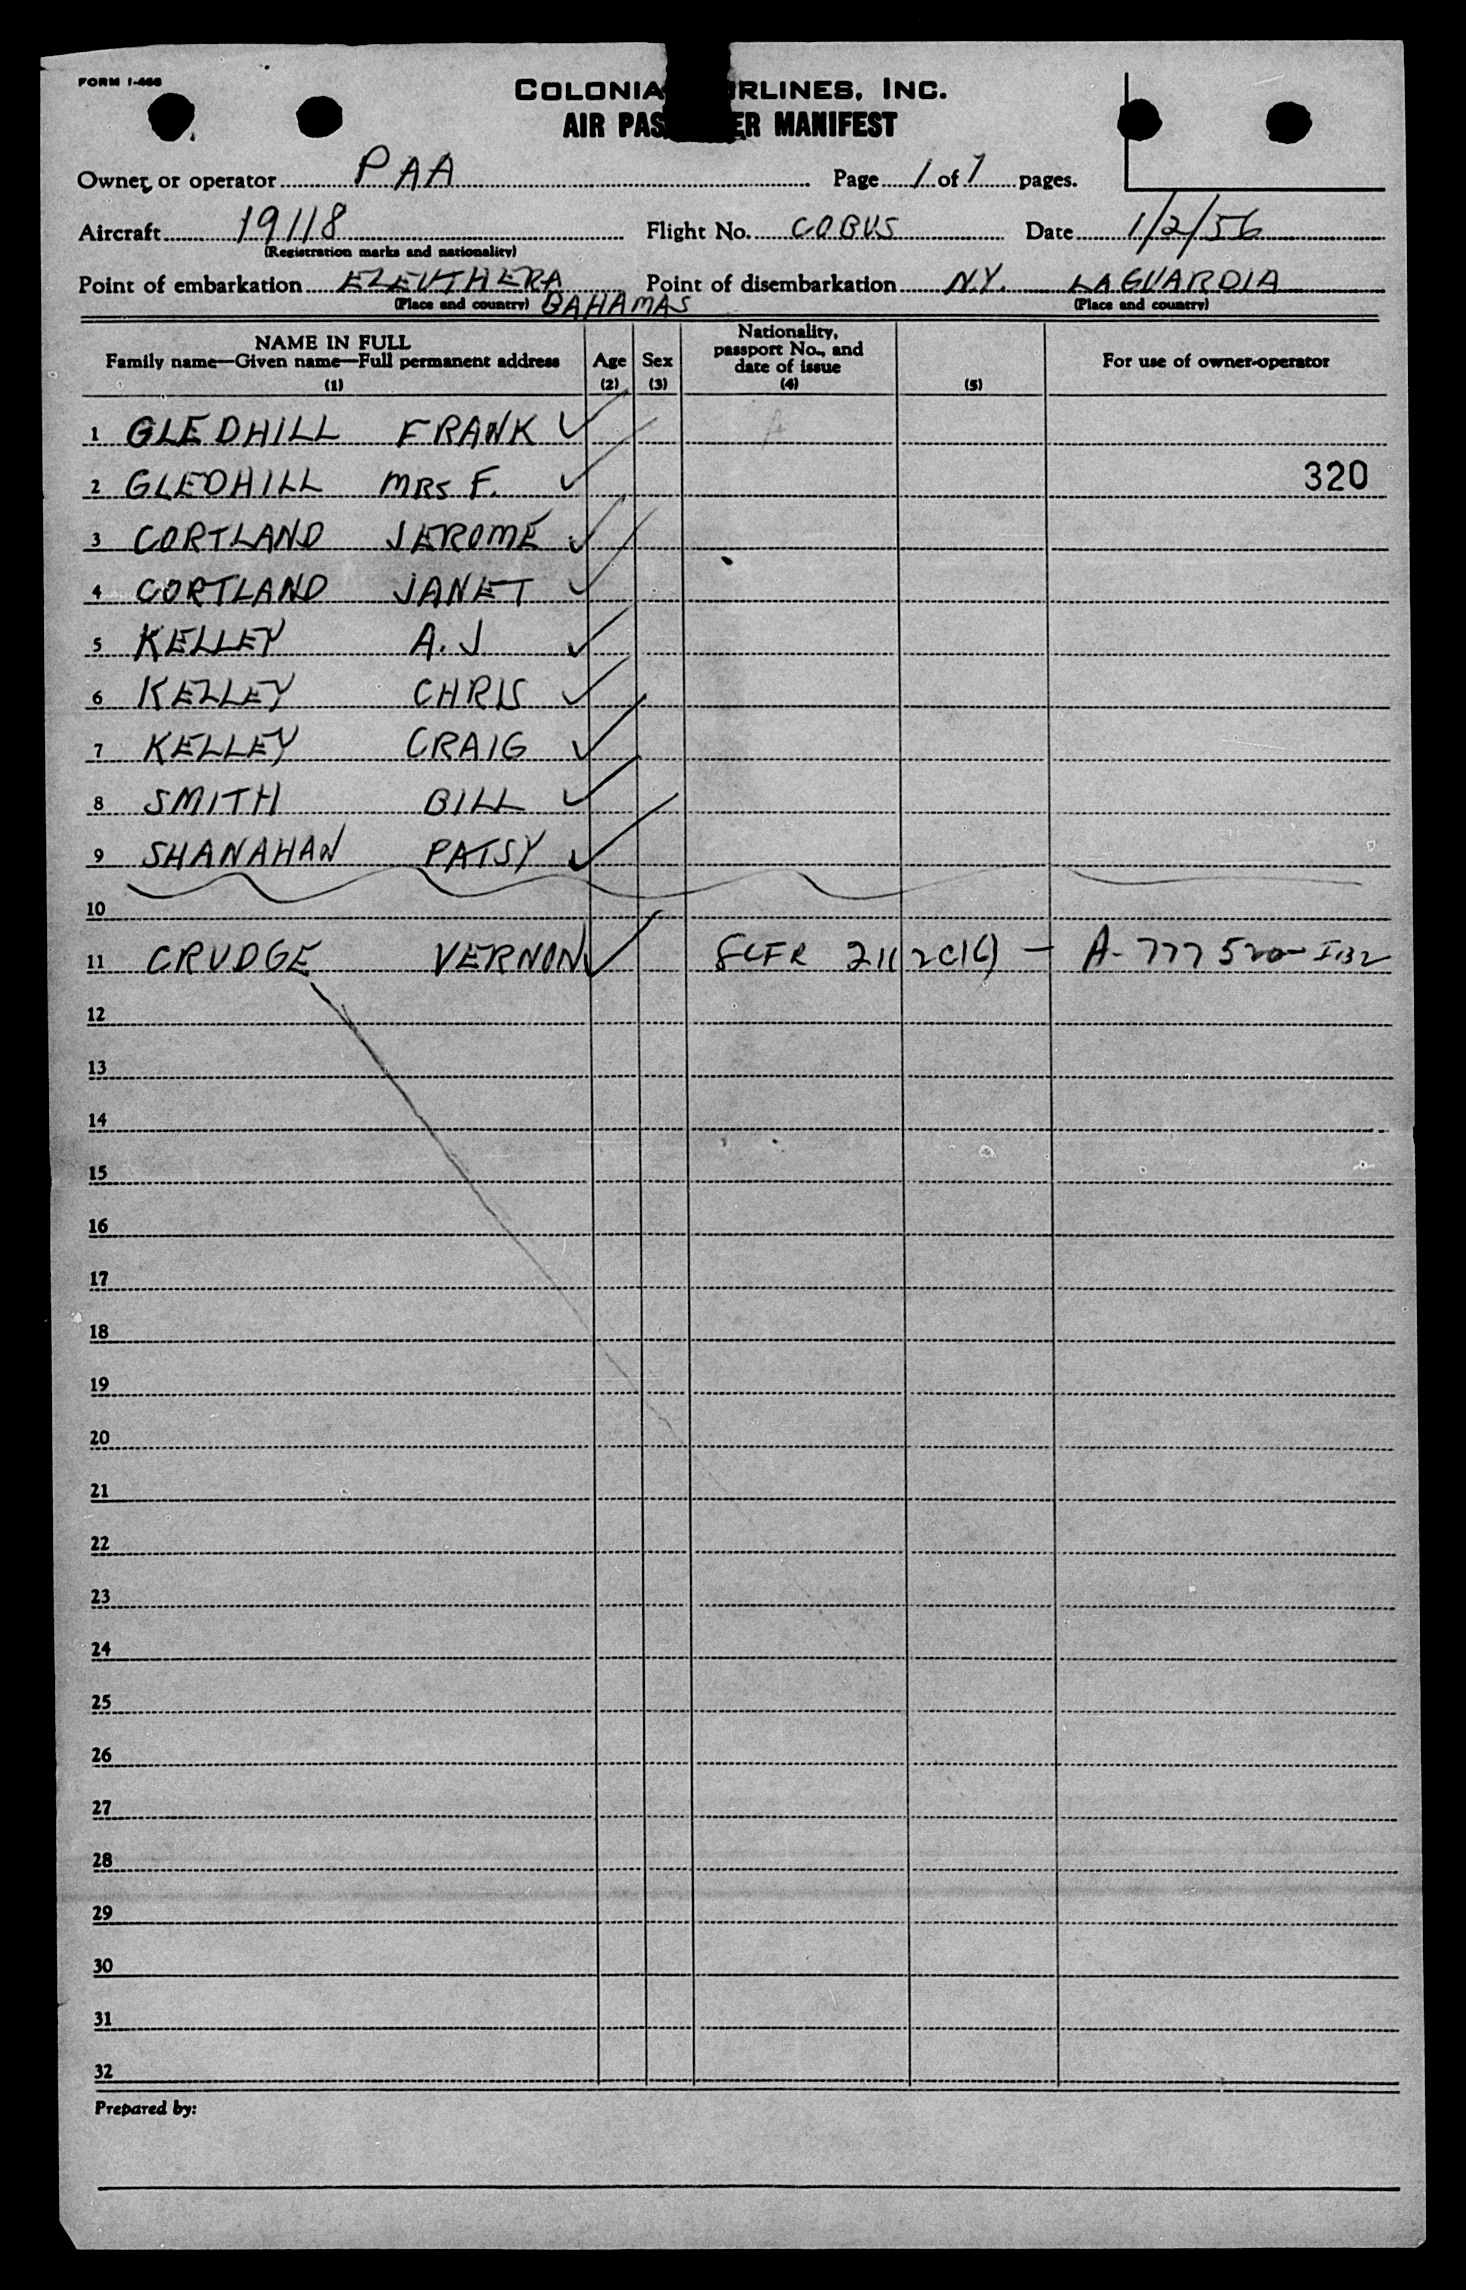 FORM I-466
COLONIA RLINES, INC.
AIR PAS ER MANIFEST
Owner or operator PAA Page 1 of 1 pages.
Aircraft 19118 Flight No. COBUS Date 1/2/56
(Registration marks and nationality)
Point of embarkation ELEUTHERA Point of disembarkation N.Y. LAGUARDIA
(Place and country) BAHAMAS (Place and country)
NAME IN FULL
Family name—Given name—Full permanent address
(1)
Age
(2)
Sex
(3)
Nationality,
passport No., and
date of issue
(4)
(5)
For use of owner-operator
1 GLEDHILL FRANK
2 GLEDHILL MRS F. 320
3 CORTLAND JEROME
4 CORTLAND JANET
5 KELLEY A. J
6 KELLEY CHRIS
7 KELLEY CRAIG
8 SMITH BILL
9 SHANAHAN PATSY
10
11 CRUDGE VERNON 8CFR 211 — A-777
12
13
14
15
16
17
18
19
20
21
22
23
24
25
26
27
28
29
30
31
32
Prepared by: